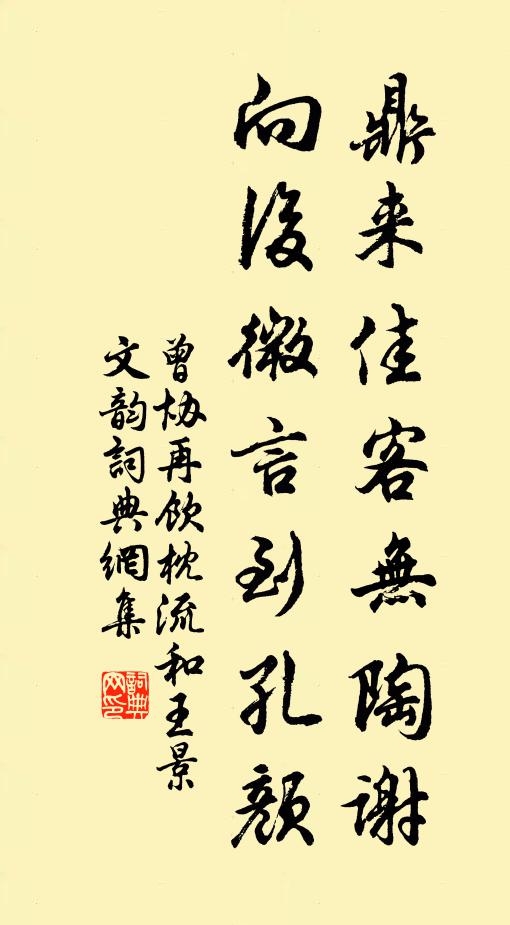 鼎来佳客無陶謝
向後微言到孔顏
曾協再飲枕流和王景
文韵詞典網集
詞典
网印